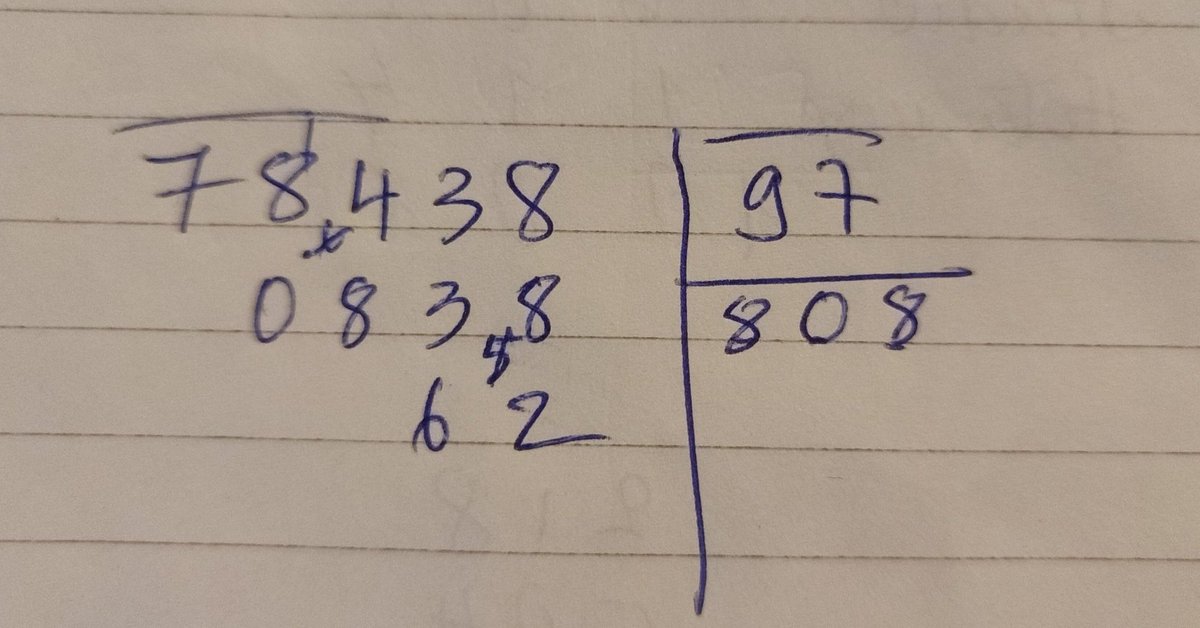 78438 97
0838 808
62